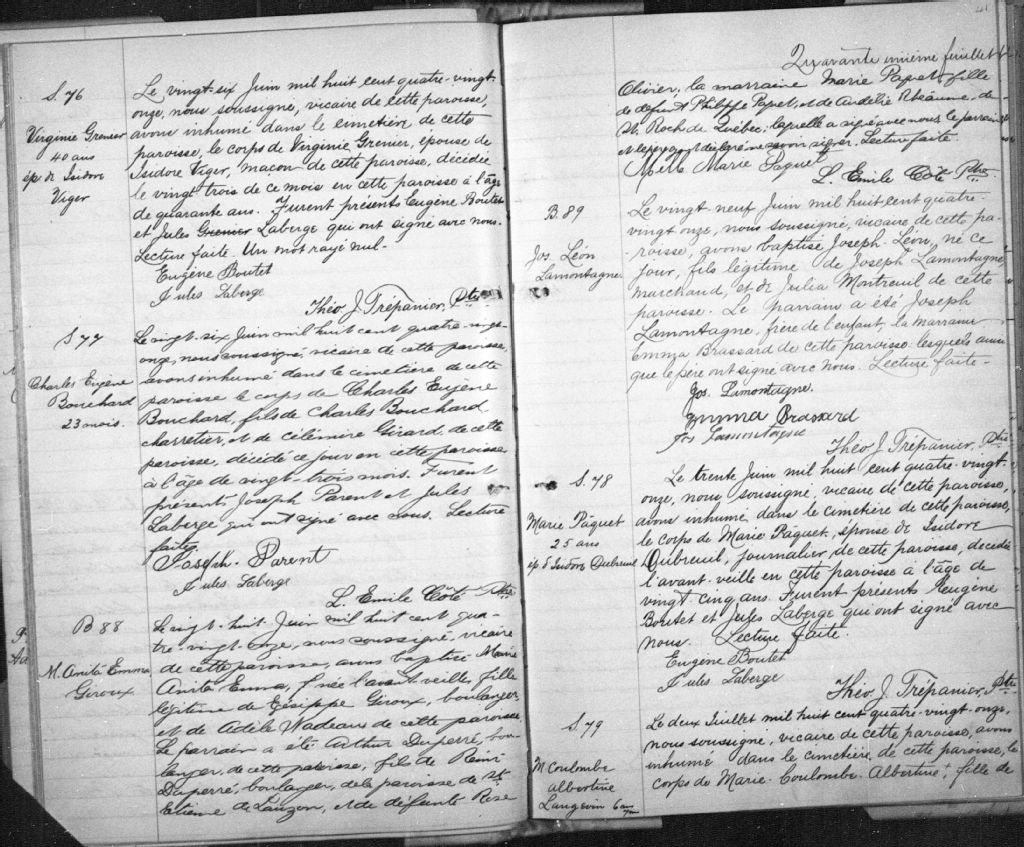 S. 76
Virginie Grenier
40 ans
ép. d' Isidore
Viger
Le vingt-six Juin mil huit cent quatre-vingt-
onze, nous soussigné, vicaire de cette paroisse,
avons inhumé dans le cimetière de cette
paroisse, le corps de Virginie Grenier, épouse de
Isidore Viger, maçon de cette paroisse, décédée
le vingt trois de ce mois en cette paroisse à l'âge
de quarante ans. Furent présents Eugène Boutet
et Jules Grenier Laberge qui ont signé avec nous.
Lecture faite. Un mot rayé nul.
Eugène Boutet
Jules Laberge
Théo J. Trépanier, Ptre
S 77
Charles Eugène
Bouchard
23 mois.
Le vingt-six Juin mil huit cent quatre-vingt-
onze, nous soussigné, vicaire de cette paroisse,
avons inhumé dans le cimetière de cette
paroisse le corps de Charles Eugène
Bouchard, fils de Charles Bouchard,
charretier, et de Célémire Girard de cette
paroisse, décédé ce jour en cette paroisse
à l'âge de vingt-trois mois. Furent
présents Joseph Parent et Jules
Laberge qui ont signé avec nous. Lecture
faite.
Joseph Parent
Jules Laberge
L. Emile Côté Ptre
B 88
M. Anita Emma
Giroux
Le vingt-huit Juin mil huit cent qua-
tre-vingt-onze, nous soussigné, vicaire
de cette paroisse, avons baptisé Marie
Anita Emma, née l'avant veille, fille
légitime de Gésippe Giroux, boulanger,
et de Adèle Nadeau de cette paroisse.
Le parrain a été Arthur Duperré, bou-
langer, de cette paroisse, fils de Rémi
Duperré, boulanger, de la paroisse de St
Etienne de Lauzon, et de défunte Rose
41
Quarante unième feuillet
Olivier, la marraine Marie Papet, fille
de défunt Philippe Papet, et de Adélie Rhéaume, de
St. Roch de Québec; laquelle a signé avec nous le parrain
et le père ont déclaré ne savoir signer. Lecture faite
Melle Marie Paquet
L. Emile Côté Ptre
B. 89
Jos. Léon
Lamontagne
Le vingt neuf Juin mil huit cent quatre-
vingt onze, nous soussigné, vicaire de cette pa-
roisse, avons baptisé Joseph-Léon, né ce
jour, fils légitime de Joseph Lamontagne,
marchand, et de Julia Montreuil de cette
paroisse. Le parrain a été Joseph
Lamontagne, frère de l'enfant, la marraine
Emma Brassard de cette paroisse lesquels ainsi
que le père ont signé avec nous. Lecture faite-
Jos. Lamontagne.
Emma Brassard
Jos Lamontagne
Théo J. Trépanier, Ptre
S. 78
Marie Pâquet
25 ans
ép. d'Isidore Dubreuil
Le trente Juin mil huit cent quatre-vingt-
onze, nous soussigné, vicaire de cette paroisse,
avons inhumé dans le cimetière de cette paroisse,
le corps de Marie Pâquet, épouse de Isidore
Dubreuil, journalier de cette paroisse, décédée
l'avant-veille en cette paroisse à l'âge de
vingt-cinq ans. Furent présents Eugène
Boutet et Jules Laberge qui ont signé avec
nous. Lecture faite.
Eugène Boutet
Jules Laberge
Théo J. Trépanier, Ptre
S. 79
M Coulombe
Albertine
Langevin 6 ans
Le deux Juillet mil huit cent quatre-vingt-onze,
nous soussigné, vicaire de cette paroisse, avons
inhumé dans le cimetière de cette paroisse, le
corps de Marie-Coulombe-Albertine, fille de